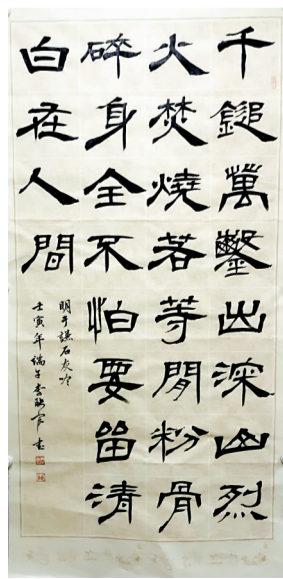 千鎚萬鑿出深山烈
火焚燒若等閒粉骨
碎身全不怕要留清
白在人間
明于謙石灰吟
壬寅年端午李